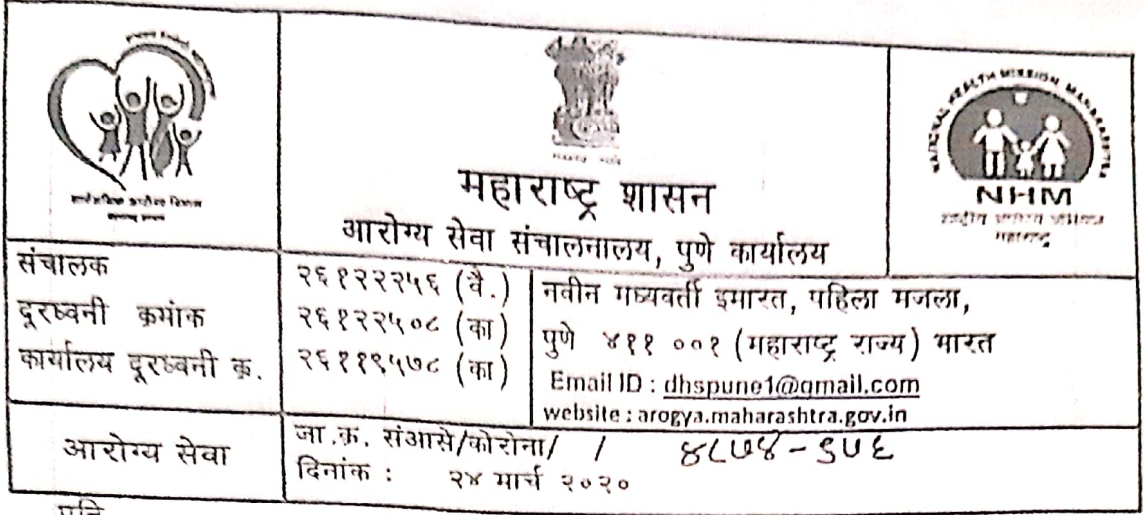 NATIONAL HEALTH MISSION MAHARASHTRA
NHM
महाराष्ट्र
महाराष्ट्र शासन
आरोग्य सेवा संचालनालय, पुणे कार्यालय
संचालक
दूरध्वनी क्रमांक
कार्यालय दूरध्वनी क्र.
२६१२२२५६ (वै.)
२६१२२५०८ (का)
२६११९५७८ (का)
नवीन मध्यवर्ती इमारत, पहिला मजला,
पुणे ४११ ००१ (महाराष्ट्र राज्य) भारत
Email ID : dhspune1@gmail.com
website : arogya.maharashtra.gov.in
आरोग्य सेवा
जा.क्र. संआसे/कोरोना/ / ४८७४-९५६
दिनांक : २४ मार्च २०२०